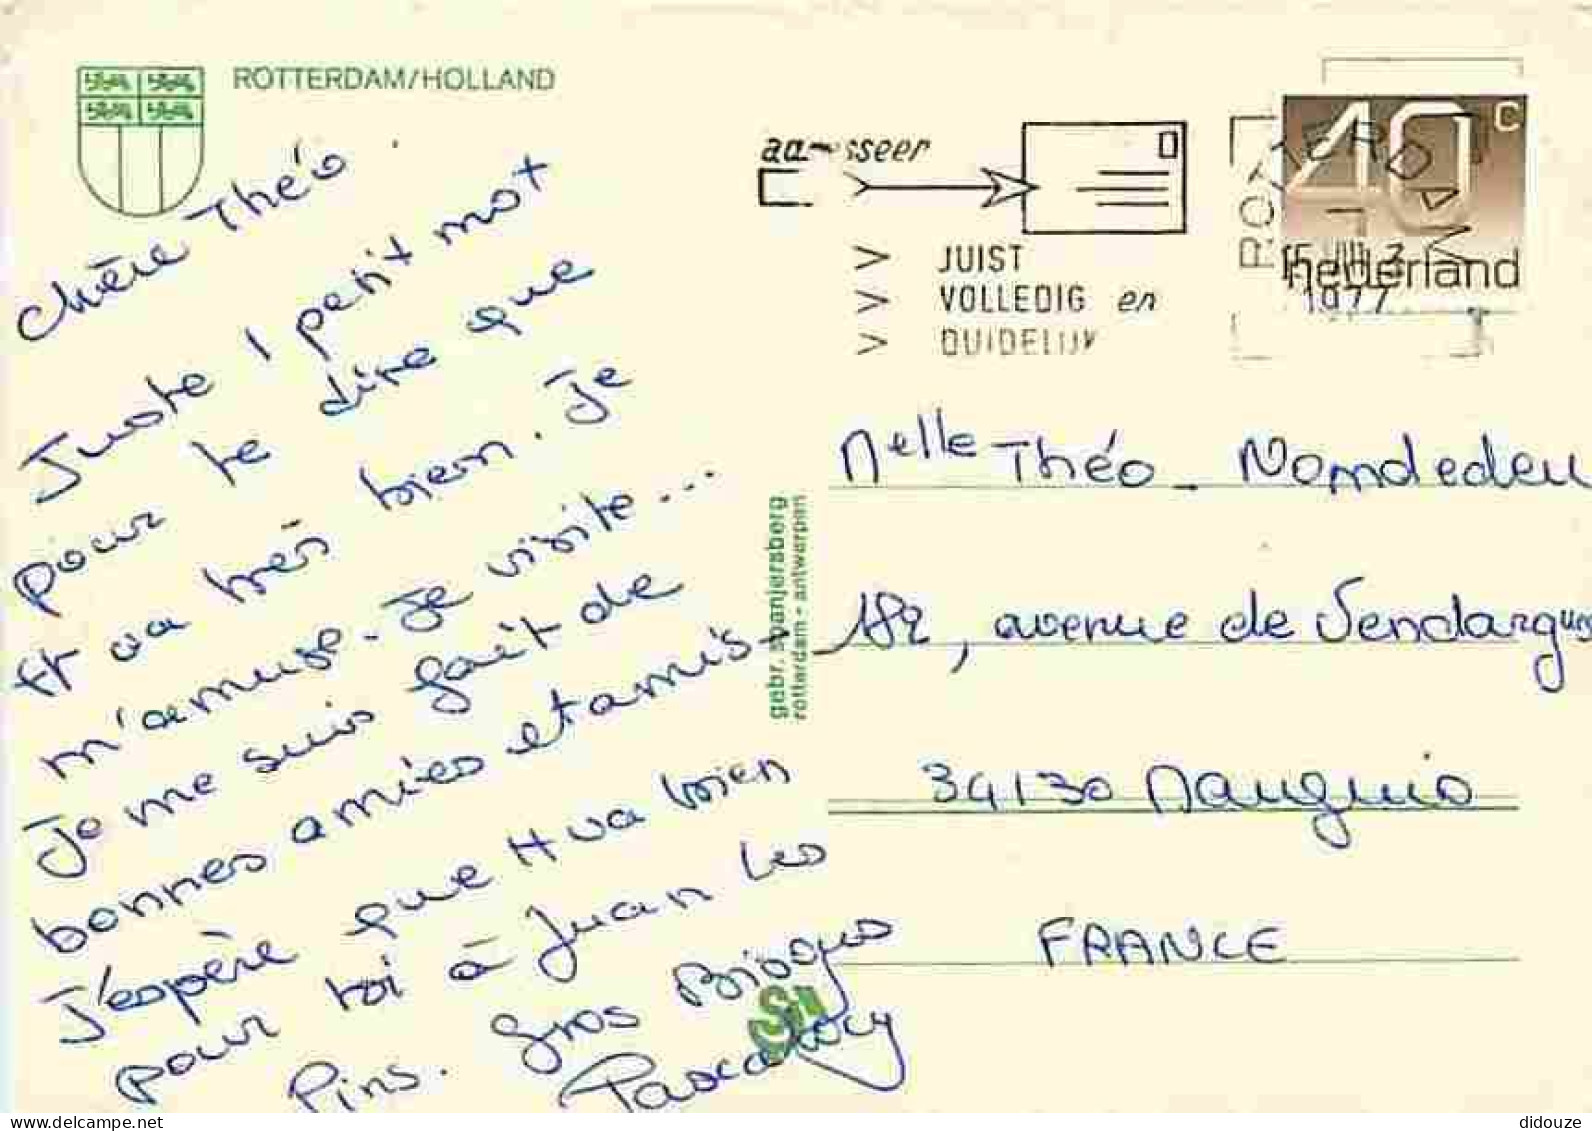 ROTTERDAM/HOLLAND
adresseer
JUIST
VOLLEDIG en
DUIDELIJK
40 c
nederland
ROTTERDAM
1977
Chère Théo
Juste 1 petit mot
pour te dire que
tt va très bien. Je
m'amuse. Je visite...
Je me suis fait de
bonnes amies et amis
J'espère que tt va bien
pour toi à Juan Les
Pins. Gros
Pascaloxy
gebr. spanjersberg
rotterdam - antwerpen
Melle Théo - Nomdedeu
182, avenue de Vendargues
34130 Mauguio
FRANCE
delcampe.net
didouze